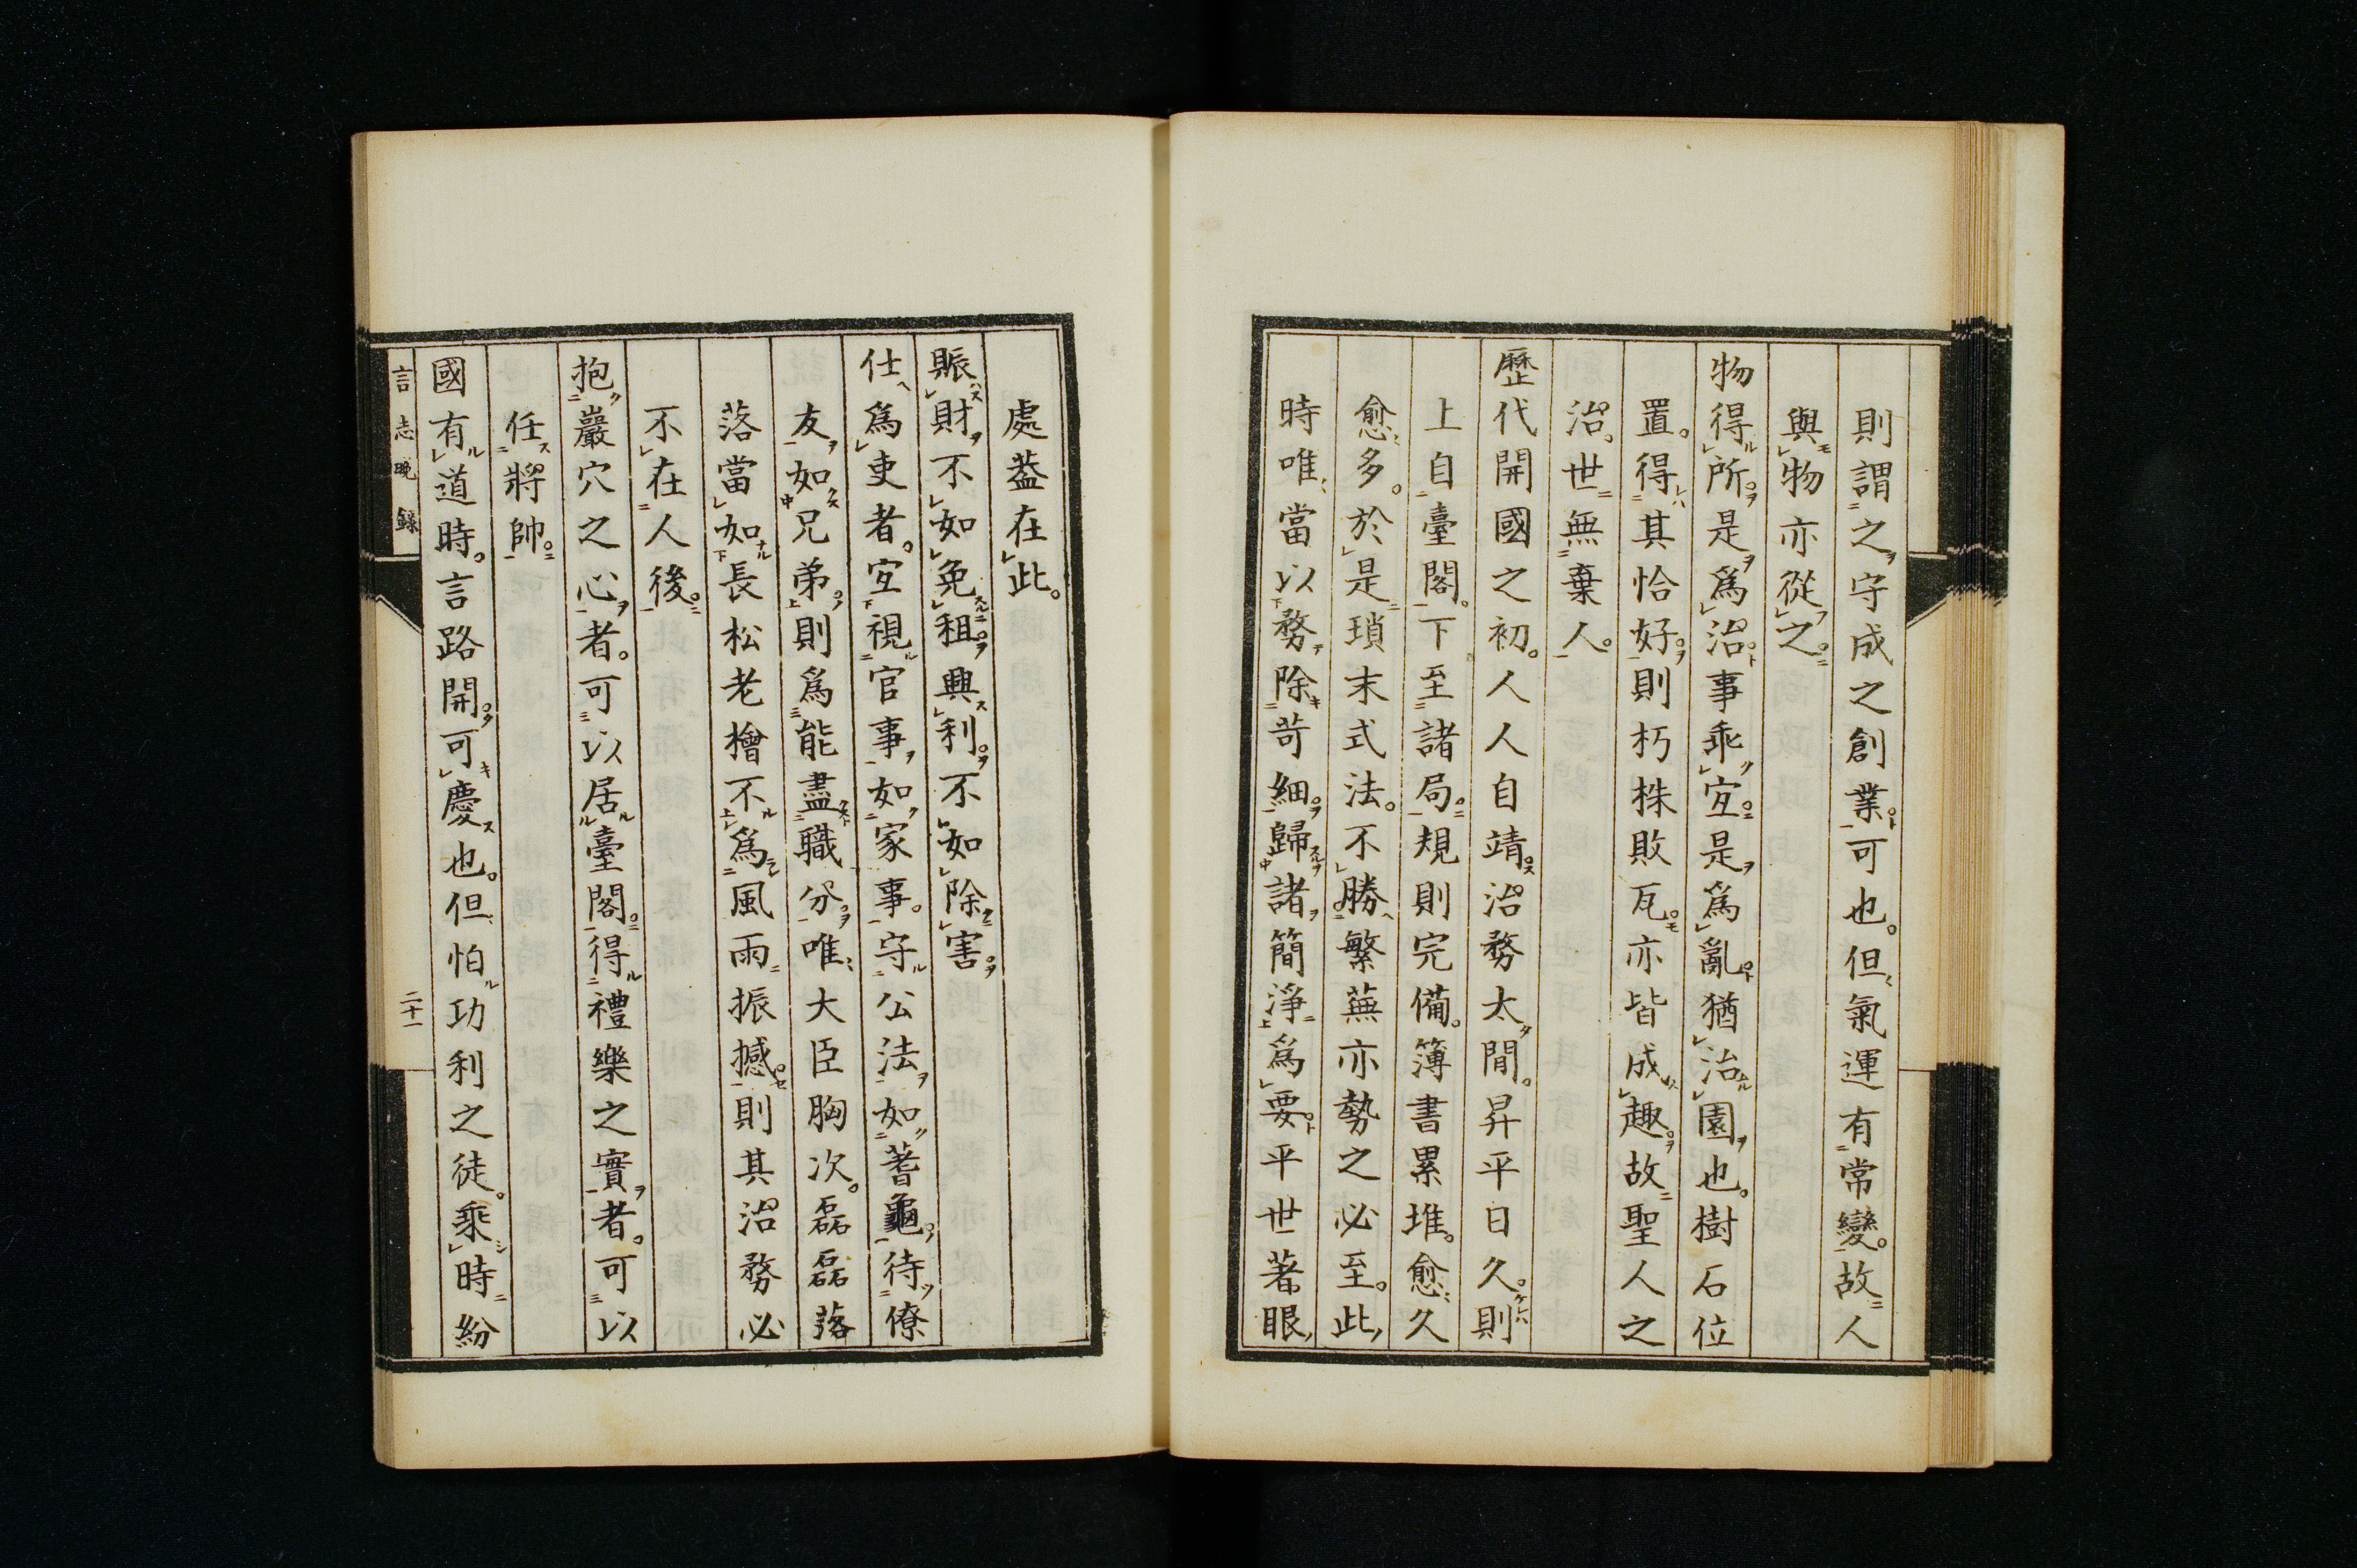 則謂之守成之創業可也。但氣運有常變。故人
與物亦從之。
物得所是爲治事乖宜是爲亂猶治園也。樹石位
置。得其恰好則朽株敗瓦亦皆成趣故聖人之
治。世無棄人。
歷代開國之初。人人自靖治務太簡。昇平日久。則
上自臺閣。下至諸局規則完備。簿書累堆。愈久
愈多。於是瑣末式法。不勝繁蕪亦勢之必至。此
時唯當以務除苛細歸諸簡淨爲要平世著眼
處蓋在此。
賑財不如免租興利不如除害
仕爲吏者。宜視官事如家事。守公法如蓍龜待僚
友如兄弟則爲能盡職分唯大臣胸次。磊磊落
落當如長松老檜不爲風雨振撼則其治務必
不在人後。
抱巖穴之心者。可以居臺閣得禮樂之實者。可以
任將帥。
國有道時。言路開可慶也。但怕功利之徒。乘時紛
言志晚錄
二十一